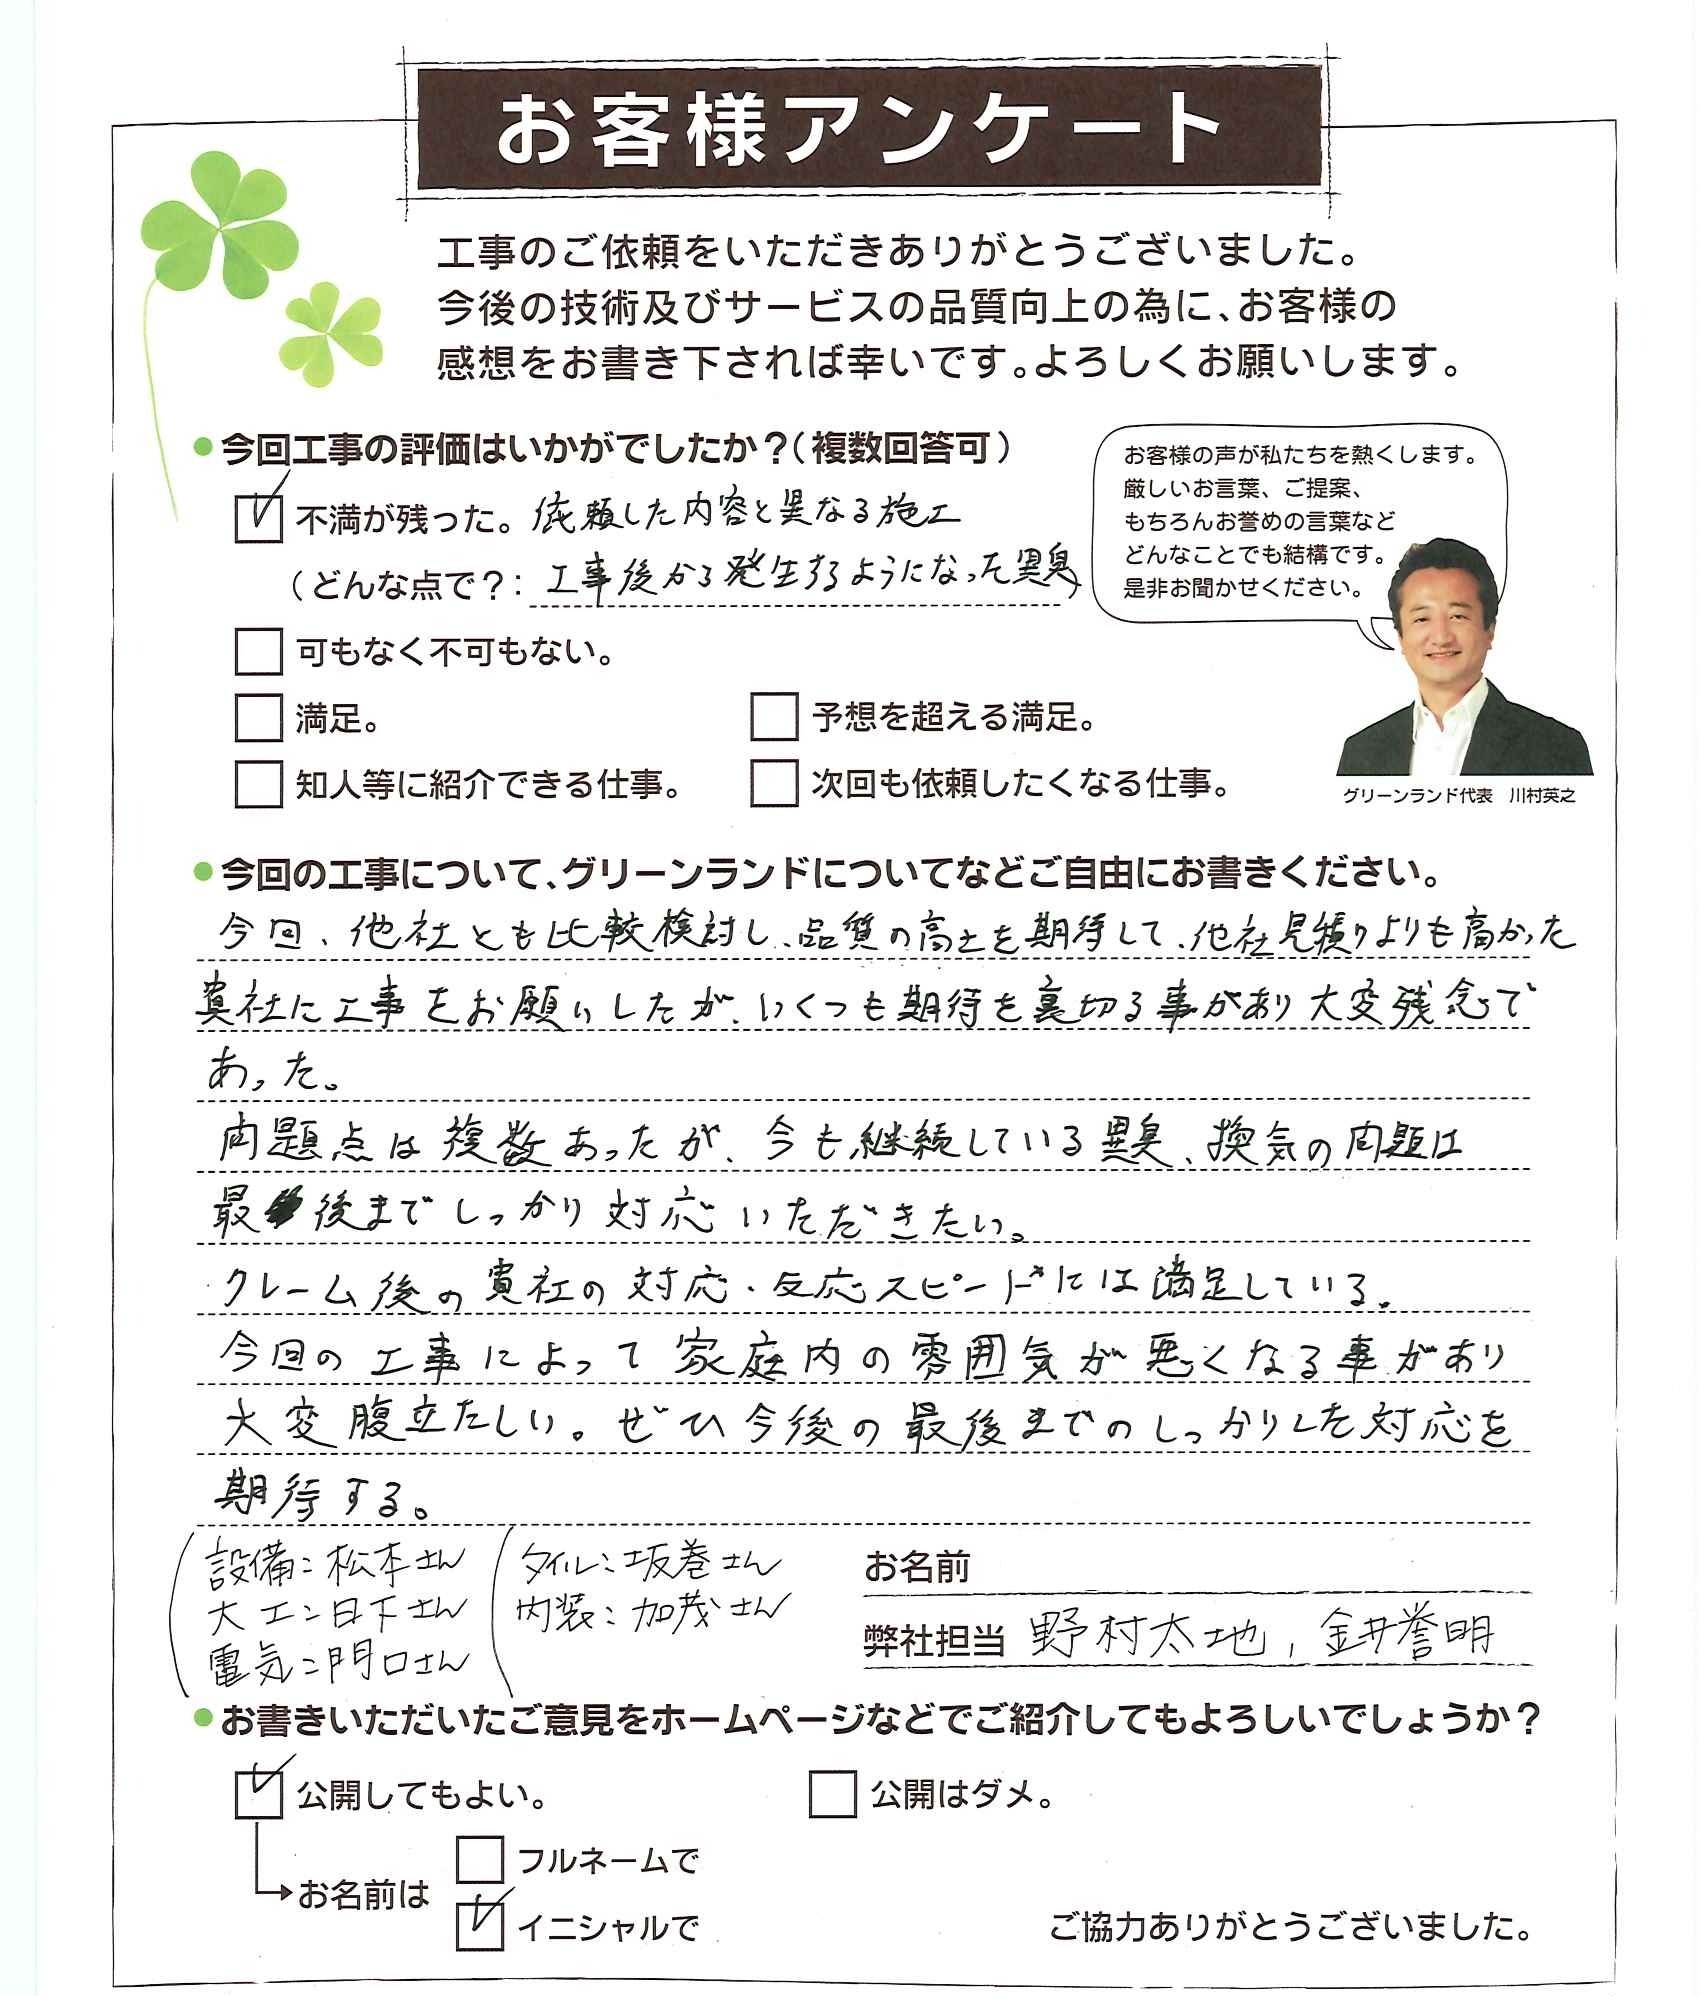 お客様アンケート
工事のご依頼をいただきありがとうございました。
今後の技術及びサービスの品質向上の為に、お客様の
感想をお書き下されば幸いです。よろしくお願いします。
●今回工事の評価はいかがでしたか？（複数回答可）
不満が残った。依頼した内容と異なる施工
（どんな点で？：工事後から発生するようになった異臭）
可もなく不可もない。
満足。 予想を超える満足。
知人等に紹介できる仕事。 次回も依頼したくなる仕事。
お客様の声が私たちを熱くします。
厳しいお言葉、ご提案、
もちろんお誉めの言葉など
どんなことでも結構です。
是非お聞かせください。
グリーンランド代表 川村英之
●今回の工事について、グリーンランドについてなどご自由にお書きください。
今回、他社とも比較検討し、品質の高さを期待して、他社見積りよりも高かった
貴社に工事をお願いしたが、いくつも期待を裏切る事があり大変残念で
あった。
問題点は複数あったが、今も継続している異臭、換気の問題は
最後までしっかり対応いただきたい。
クレーム後の貴社の対応・反応スピードには満足している。
今回の工事によって家庭内の雰囲気が悪くなる事があり
大変腹立たしい。ぜひ今後の最後までのしっかりした対応を
期待する。
設備：松本さん
大工：日下さん
電気：門口さん
タイル：坂巻さん
内装：加茂さん
お名前
弊社担当 野村太地，金井誉明
●お書きいただいたご意見をホームページなどでご紹介してもよろしいでしょうか？
公開してもよい。 公開はダメ。
お名前は
フルネームで
イニシャルで
ご協力ありがとうございました。